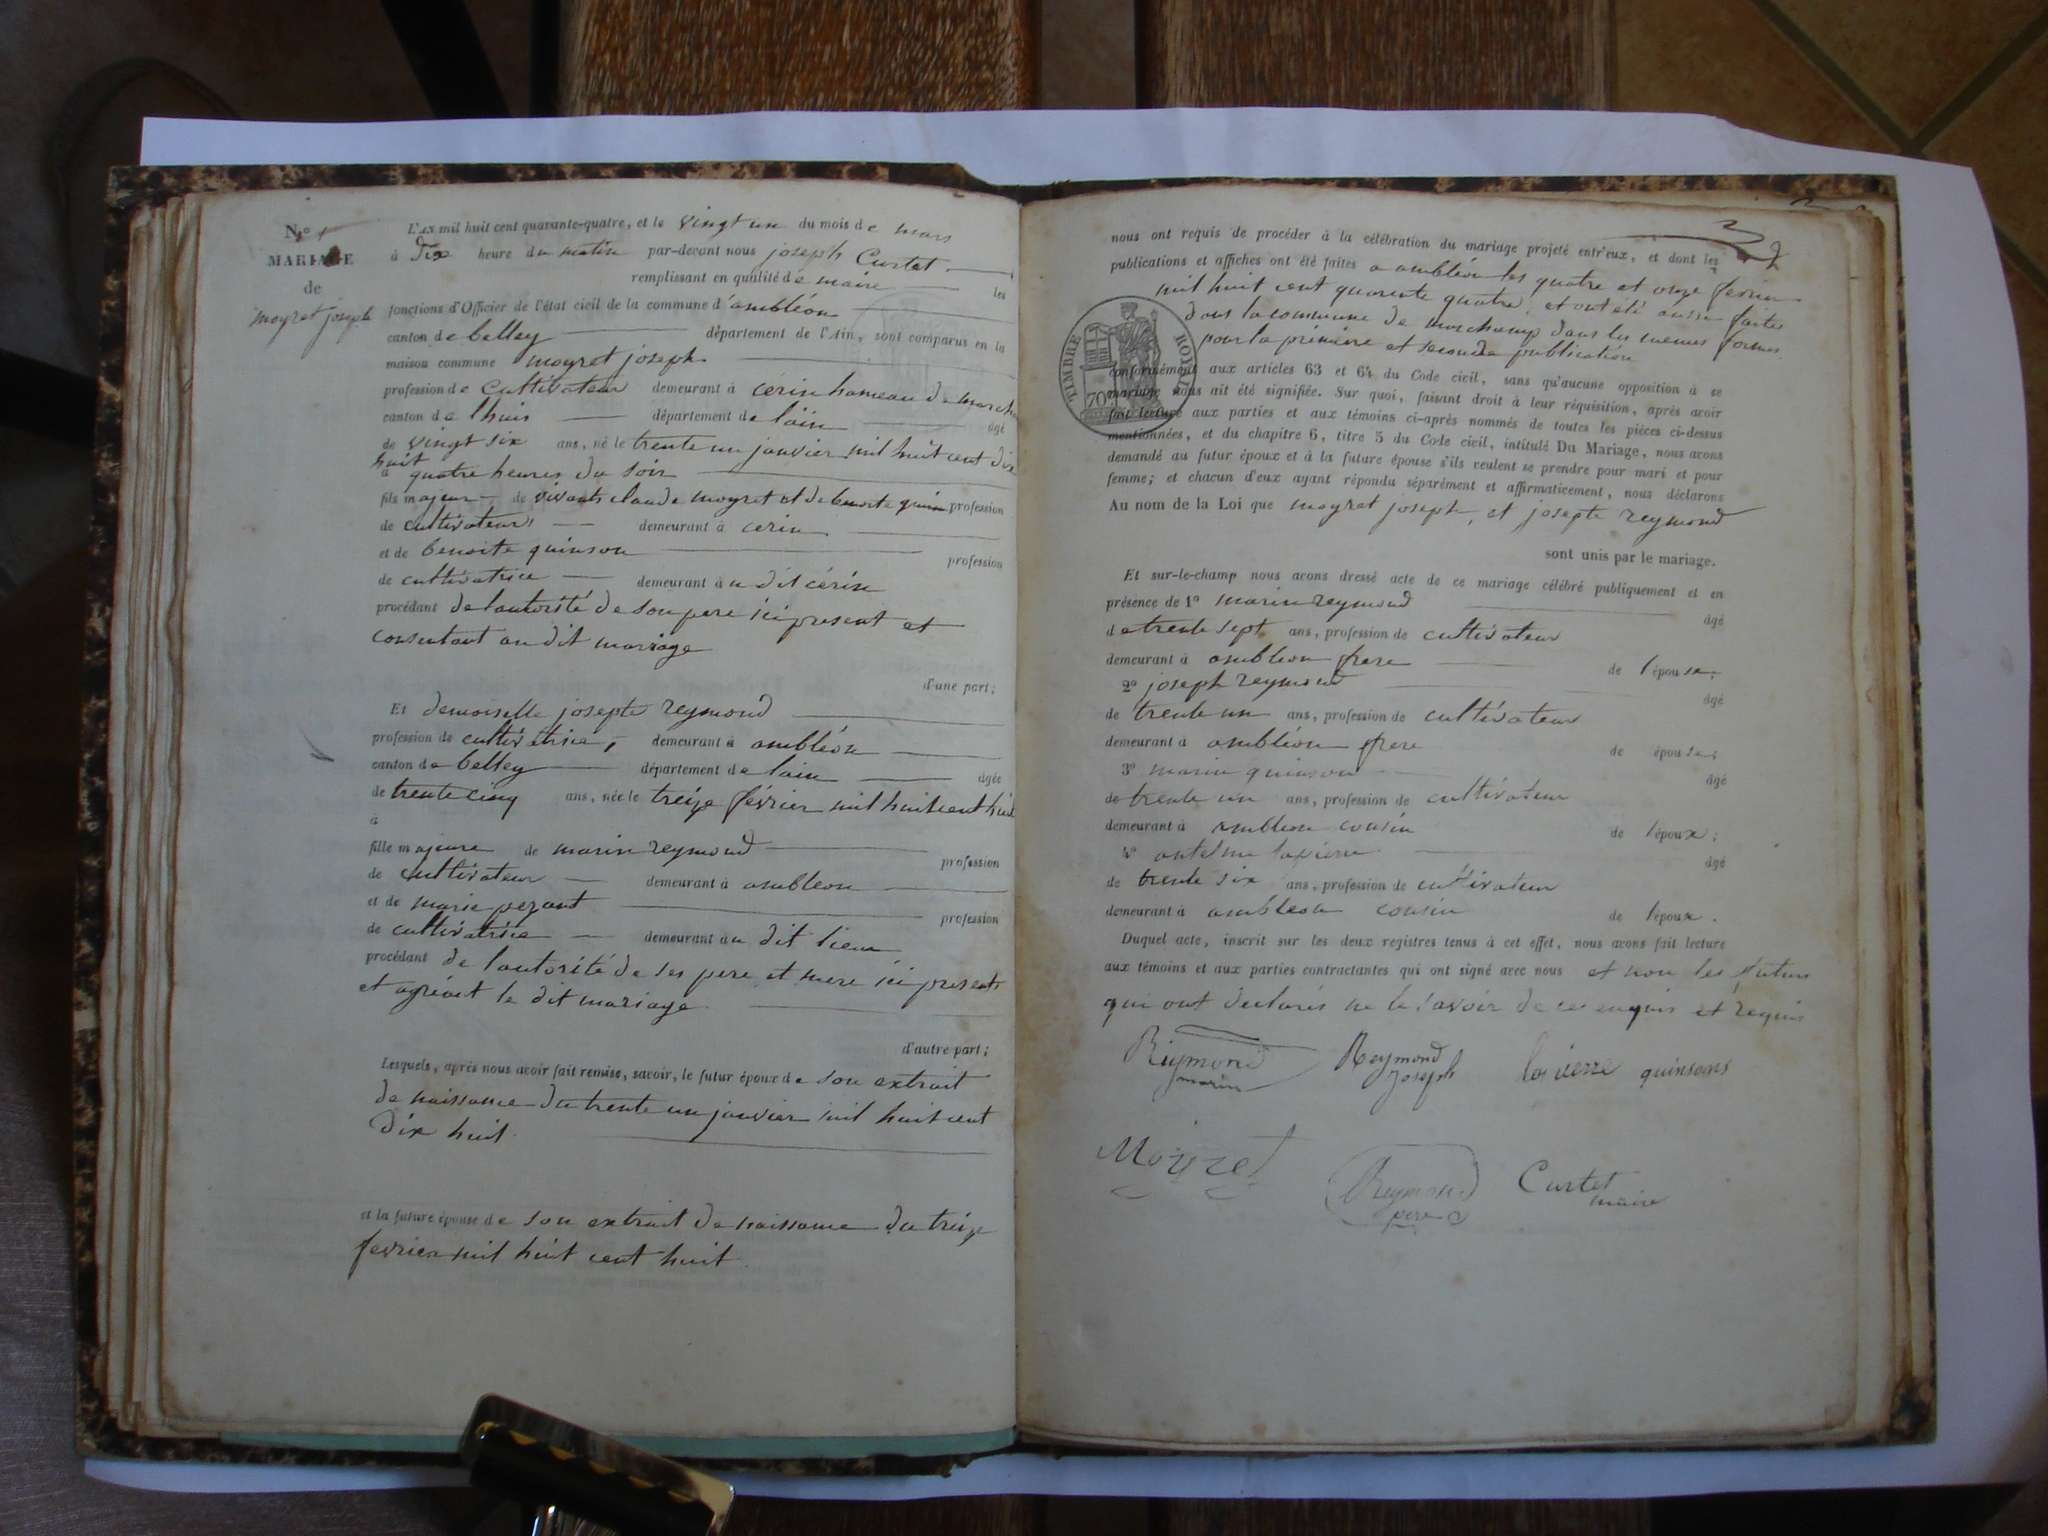 N.º 1
MARIAGE
de
moyret joseph
L'AN mil huit cent quarante-quatre, et le vingt un du mois de mars
à Dix heure du matin par-devant nous joseph Curtet
remplissant en qualité de maire les
fonctions d'Officier de l'état civil de la commune d'ambléon
canton de belley département de l'Ain, sont comparus en la
maison commune moyret joseph
profession de Cultivateur demeurant à cérin hameau de march
canton de lhuis département de lain âgé
de vingt six ans, né le trente un janvier mil huit cent dix
huit
à quatre heures du soir
fils majeur de vivants claude moyret et de benoite quin profession
de cultivateur demeurant à cerin
et de benoite quinson profession
de cultivatrice demeurant au dit cérin
procédant de lautorité de son pere ici present et
consentant au dit mariage
d'une part;
Et demoiselle josepte reymond
profession de cultivatrice, demeurant à ambléon
canton de belley département de lain âgée
de trente cinq ans, née le treize février mil huit cent huit
à
fille majeure de marin reymond profession
de cultivateur demeurant à ambleon
et de marie pezant profession
de cultivatrice demeurant au dit lieu
procédant de lautorité de ses pere et mere ici presents
et agréant le dit mariage
d'autre part;
Lesquels, après nous avoir fait remise, savoir, le futur époux de son extrait
de naissance du trente un janvier mil huit cent
dix huit
et la future épouse de son extrait de naissance du treize
fevrier mil huit cent huit
nous ont requis de procéder à la célébration du mariage projeté entr'eux, et dont les
publications et affiches ont été faites a ambléon les quatre et onze fevrier
mil huit cent quarente quatre, et ont été aussi faites
dans la commune de marchamp dans les memes formes
pour la prémière et seconde publication
TIMBRE ROYAL
70
conformément aux articles 63 et 64 du Code civil, sans qu'aucune opposition à ce
mariage nous ait été signifiée. Sur quoi, faisant droit à leur réquisition, après avoir
fait lecture aux parties et aux témoins ci-après nommés de toutes les pièces ci-dessus
mentionnées, et du chapitre 6, titre 5 du Code civil, intitulé Du Mariage, nous avons
demandé au futur époux et à la future épouse s'ils veulent se prendre pour mari et pour
femme; et chacun d'eux ayant répondu séparément et affirmativement, nous déclarons
Au nom de la Loi que moyret joseph, et josepte reymond
sont unis par le mariage.
Et sur-le-champ nous avons dressé acte de ce mariage célébré publiquement et en
présence de 1º marin reymond âgé
de trente sept ans, profession de cultivateur
demeurant à ambleon frere de l'épouse;
2º joseph reymond âgé
de trente un ans, profession de cultivateur
demeurant à ambléon frere de épouse;
3º marin quinson âgé
de trente un ans, profession de cultivateur
demeurant à ambleon cousin de l'époux;
4º antelme lapierre âgé
de trente six ans, profession de cultivateur
demeurant à ambleon cousin de l'époux.
Duquel acte, inscrit sur les deux registres tenus à cet effet, nous avons fait lecture
aux témoins et aux parties contractantes qui ont signé avec nous et non les futurs
qui ont declarés ne le savoir de ce enquis et requis
Reymond marin
Reymond Joseph
lapierre quinsons
Moyret
Reymond pere
Curtet maire